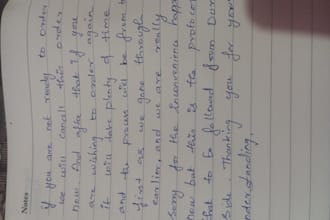 Notes
if you are not ready to order
we will cancll this order
now And after that if you
are wishing to order again
it will take plenty of time
and to process will be from the
first as we gone through
earlier, and we are really
Sorry for the inconvenience happ
now but this is the protocol
that to be followed from Our
side. Thanking you for your
understanding.